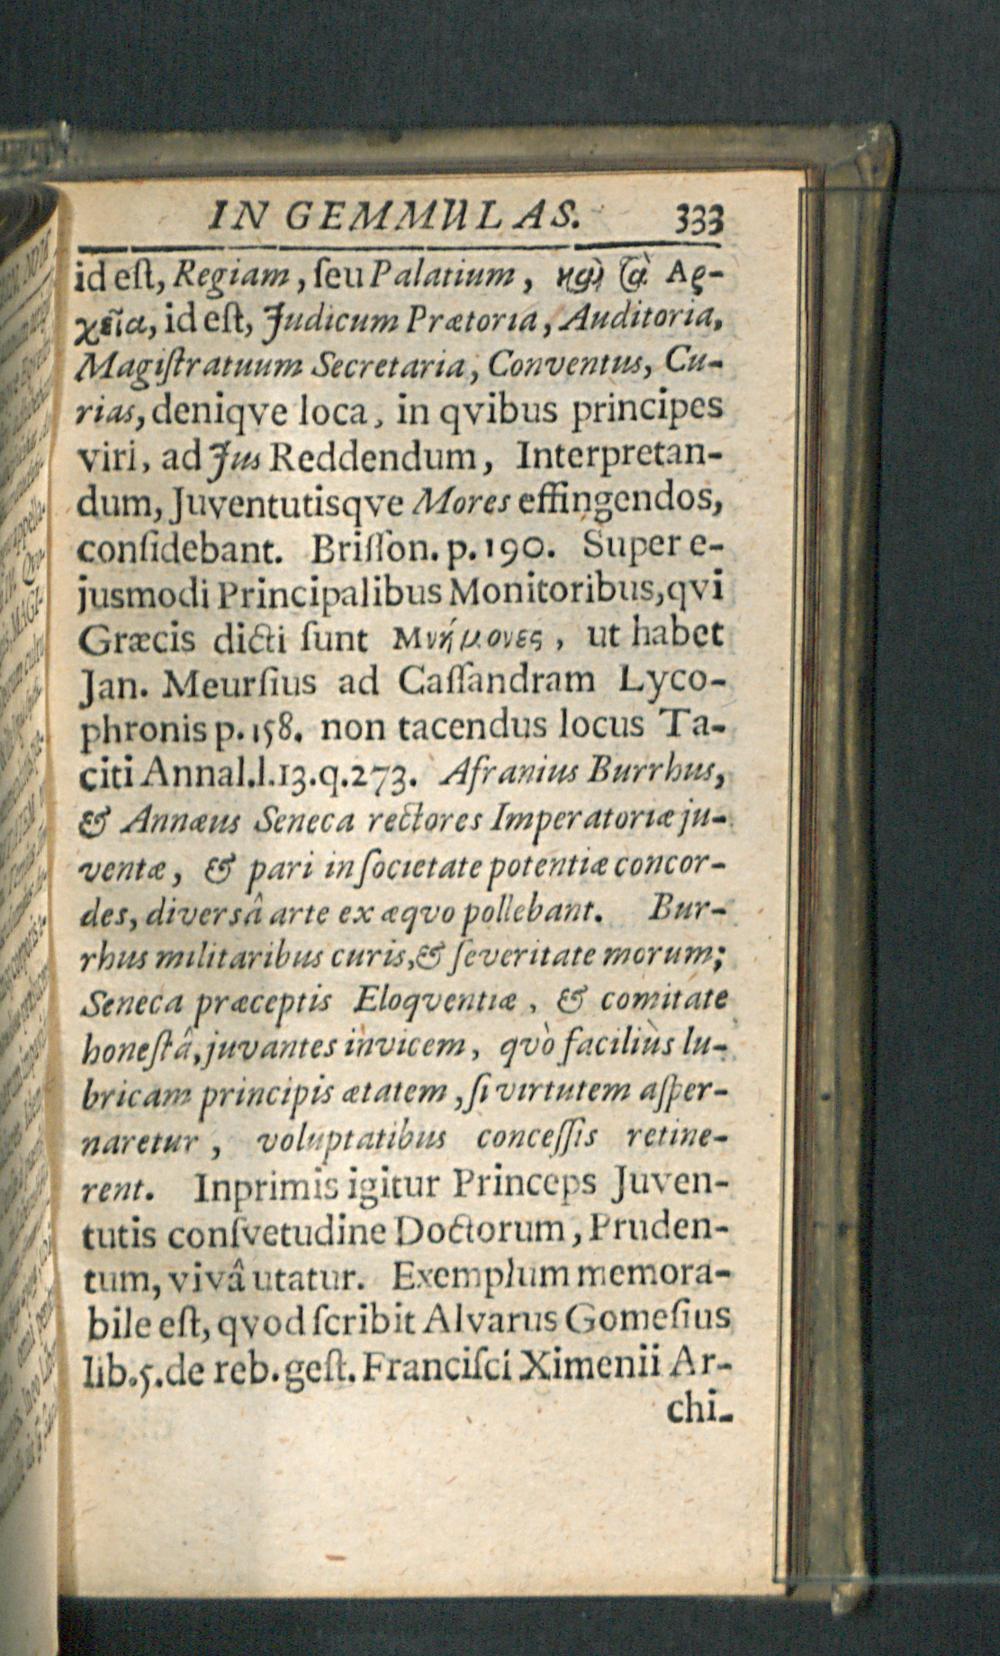 IN GEMMULAS. 333
id est, Regiam, seu Palatium, καὶ τὰ Αρ-
χεῖα, id est, Judicum Prætoria, Auditoria,
Magistratuum Secretaria, Conventus, Cu-
rias, deniqve loca, in qvibus principes
viri, ad Jus Reddendum, Interpretan-
dum, Juventutisqve Mores effingendos,
considebant. Brisson. p. 190. Super e-
jusmodi Principalibus Monitoribus, qvi
Græcis dicti sunt Μνήμονες, ut habet
Jan. Meursius ad Cassandram Lyco-
phronis p. 158. non tacendus locus Ta-
citi Annal. l. 13. q. 273. Afranius Burrhus,
& Annæus Seneca rectores Imperatoriæ ju-
ventæ, & pari in societate potentiæ concor-
des, diversâ arte ex æqvo pollebant. Bur-
rhus militaribus curis, & severitate morum;
Seneca præceptis Eloqventiæ, & comitate
honestâ, juvantes invicem, qvò faciliùs lu-
bricam principis ætatem, si virtutem asper-
naretur, voluptatibus concessis retine-
rent. Inprimis igitur Princeps Juven-
tutis consvetudine Doctorum, Pruden-
tum, vivâ utatur. Exemplum memora-
bile est, qvod scribit Alvarus Gomesius
lib. 5. de reb. gest. Francisci Ximenii Ar-
chi-